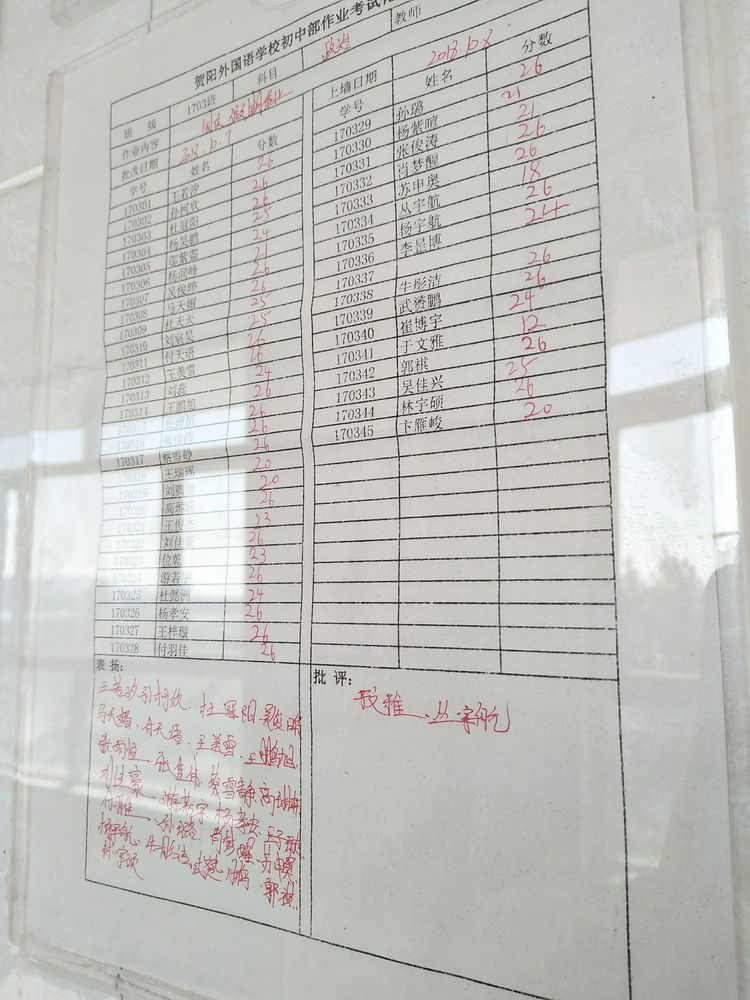 贺阳外国语学校初中部作业考试
班 级 1703班 科目 政治 教师
作业内容 国庆假期作业 上墙日期 2018.10.8
批改日期 2018.10.7
学号 姓名 分数
170301 王若汐 26
170302 孙柯欣 26
170303 杜冠阳 26
170304 杨昊鹏 25
170305 紫蒙 24
170306 杨润峰 21
170307 吴俊晔 26
170308 马天媚 26
170309 杜天天 25
170310 刘宸昊 25
170311 付天语 26
170312 王美雪 26
170313 刘蕊 24
170314 王鹏旭 26
170315 26
170316 张佳伟 26
170317 蔡雪静 26
170318 王瑞瑶 20
170319 刘腾 20
170320 高琳 26
170321 王俊杰 23
170322 刘佳豪 26
170323 位乾 23
170324 游若宇 26
170325 杜懿洲 24
170326 杨孝安 26
170327 王梓璇 26
170328 付羽佳 26
学号 姓名 分数
170329 孙璐 26
170330 杨紫暄 21
170331 张俊涛 21
170332 肖梦醒 26
170333 苏申奥 26
170334 丛宇航 18
170335 杨宇航 26
170336 李昆博 24
170337
170338 牛彤洁 26
170339 武赟鹏 26
170340 崔博宇 24
170341 于文雅 12
170342 郭祺 26
170343 吴佳兴 25
170344 林宇硕 26
170345 卞雁峻 20
表 扬：
王若汐、孙柯欣、杜冠阳、吴俊晔
马天媚、付天语、王美雪、王鹏旭
张佳伟、蔡雪静、高琳
刘佳豪、游若宇、杨孝安、王梓璇
付羽佳、孙璐、肖梦醒、苏申奥
杨宇航、牛彤洁、武赟鹏、郭祺
林宇硕
批 评：
文雅、丛宇航